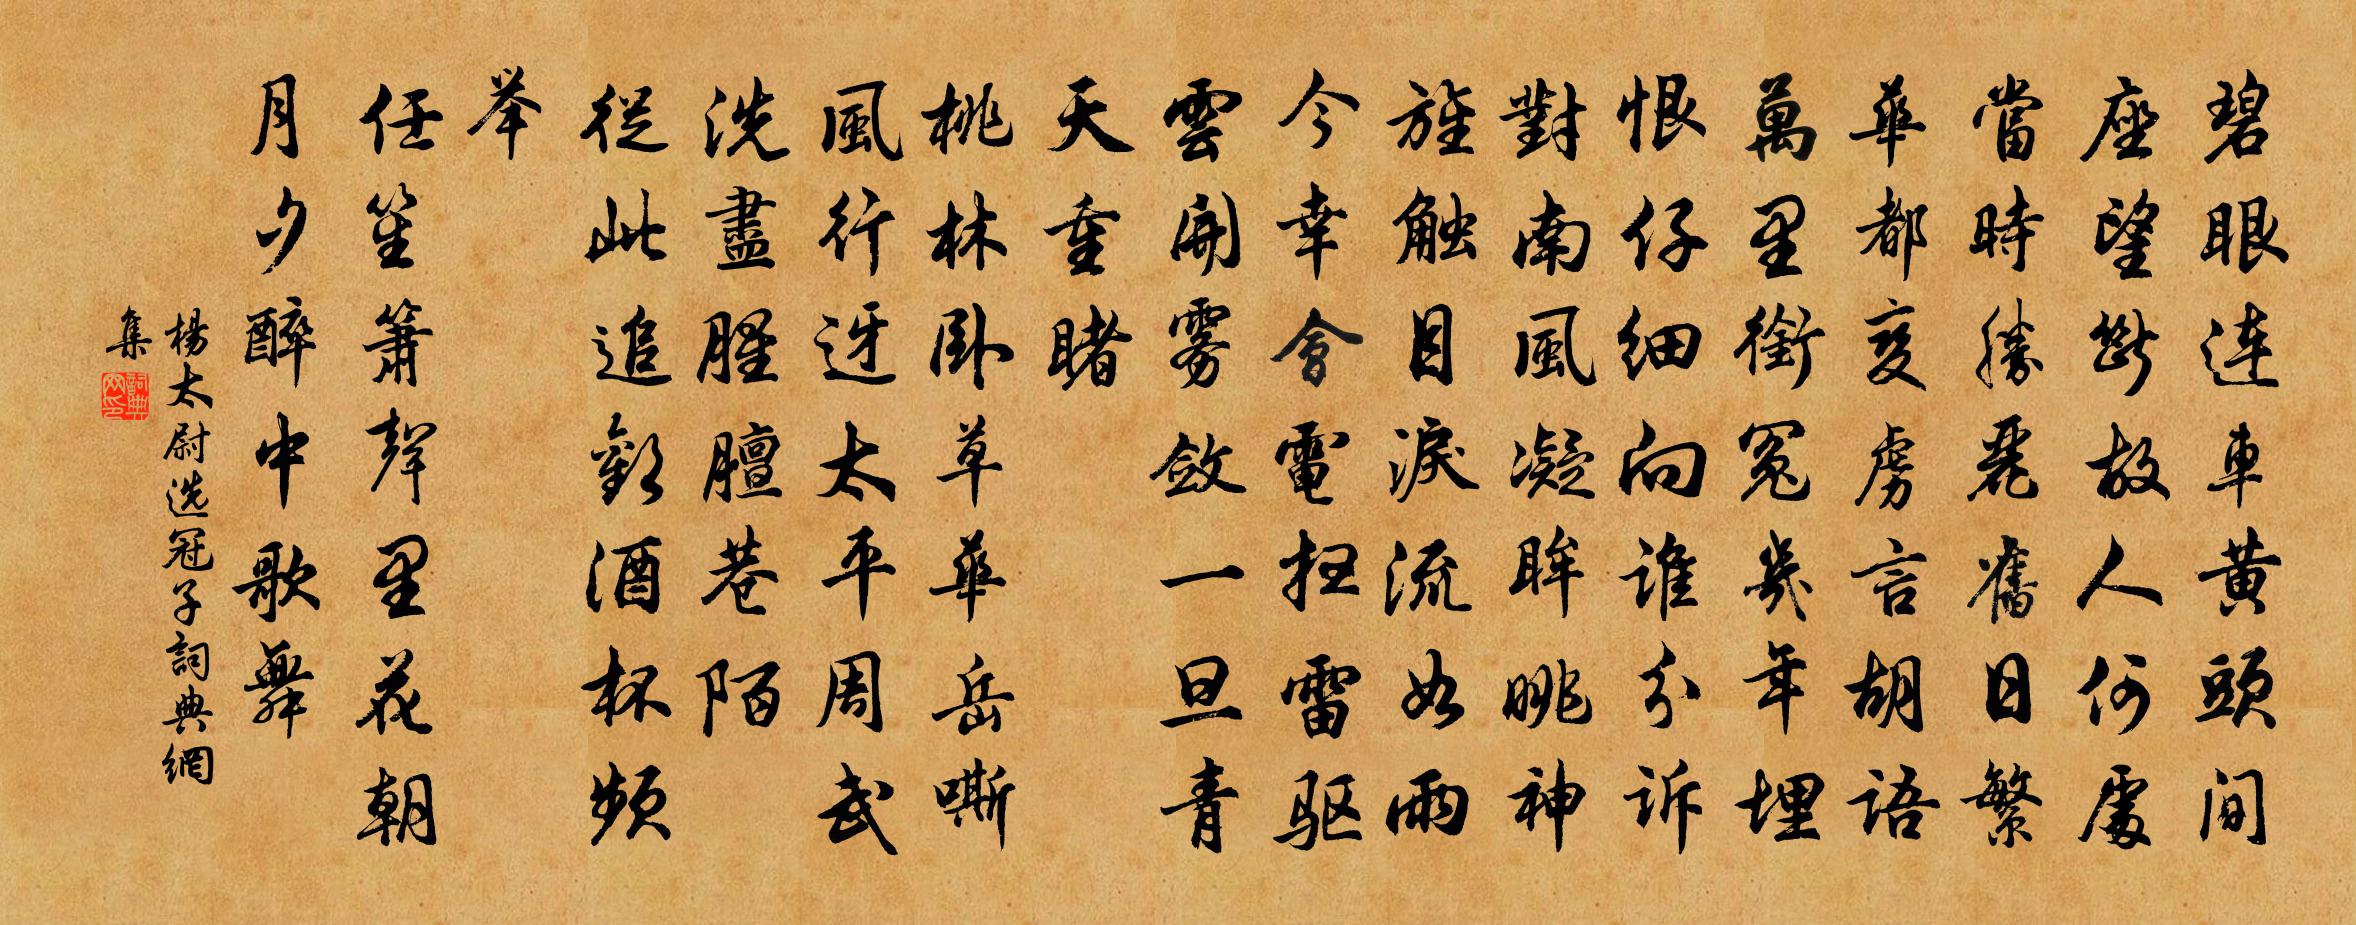 碧眼连車黄頭间
座望斷故人何處
當時勝麗舊日繁
華都变虏言胡語
萬里銜冤幾年埋
恨仔细向谁分诉
對南風凝眸眺神
旌触目淚流如雨
今幸會電扫雷驱
雲開雾斂一旦青
天重睹
桃林卧草華岳嘶
風行迓太平周武
洗盡腥膻巷陌
從此追歡酒杯频
举
任笙簫聲里花朝
月夕醉中歌舞
楊太尉选冠子詞典網
集
詞典网印